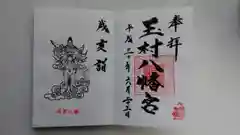 奉拝
玉村八幡宮
平成三十年六月廿三日
戌亥詣